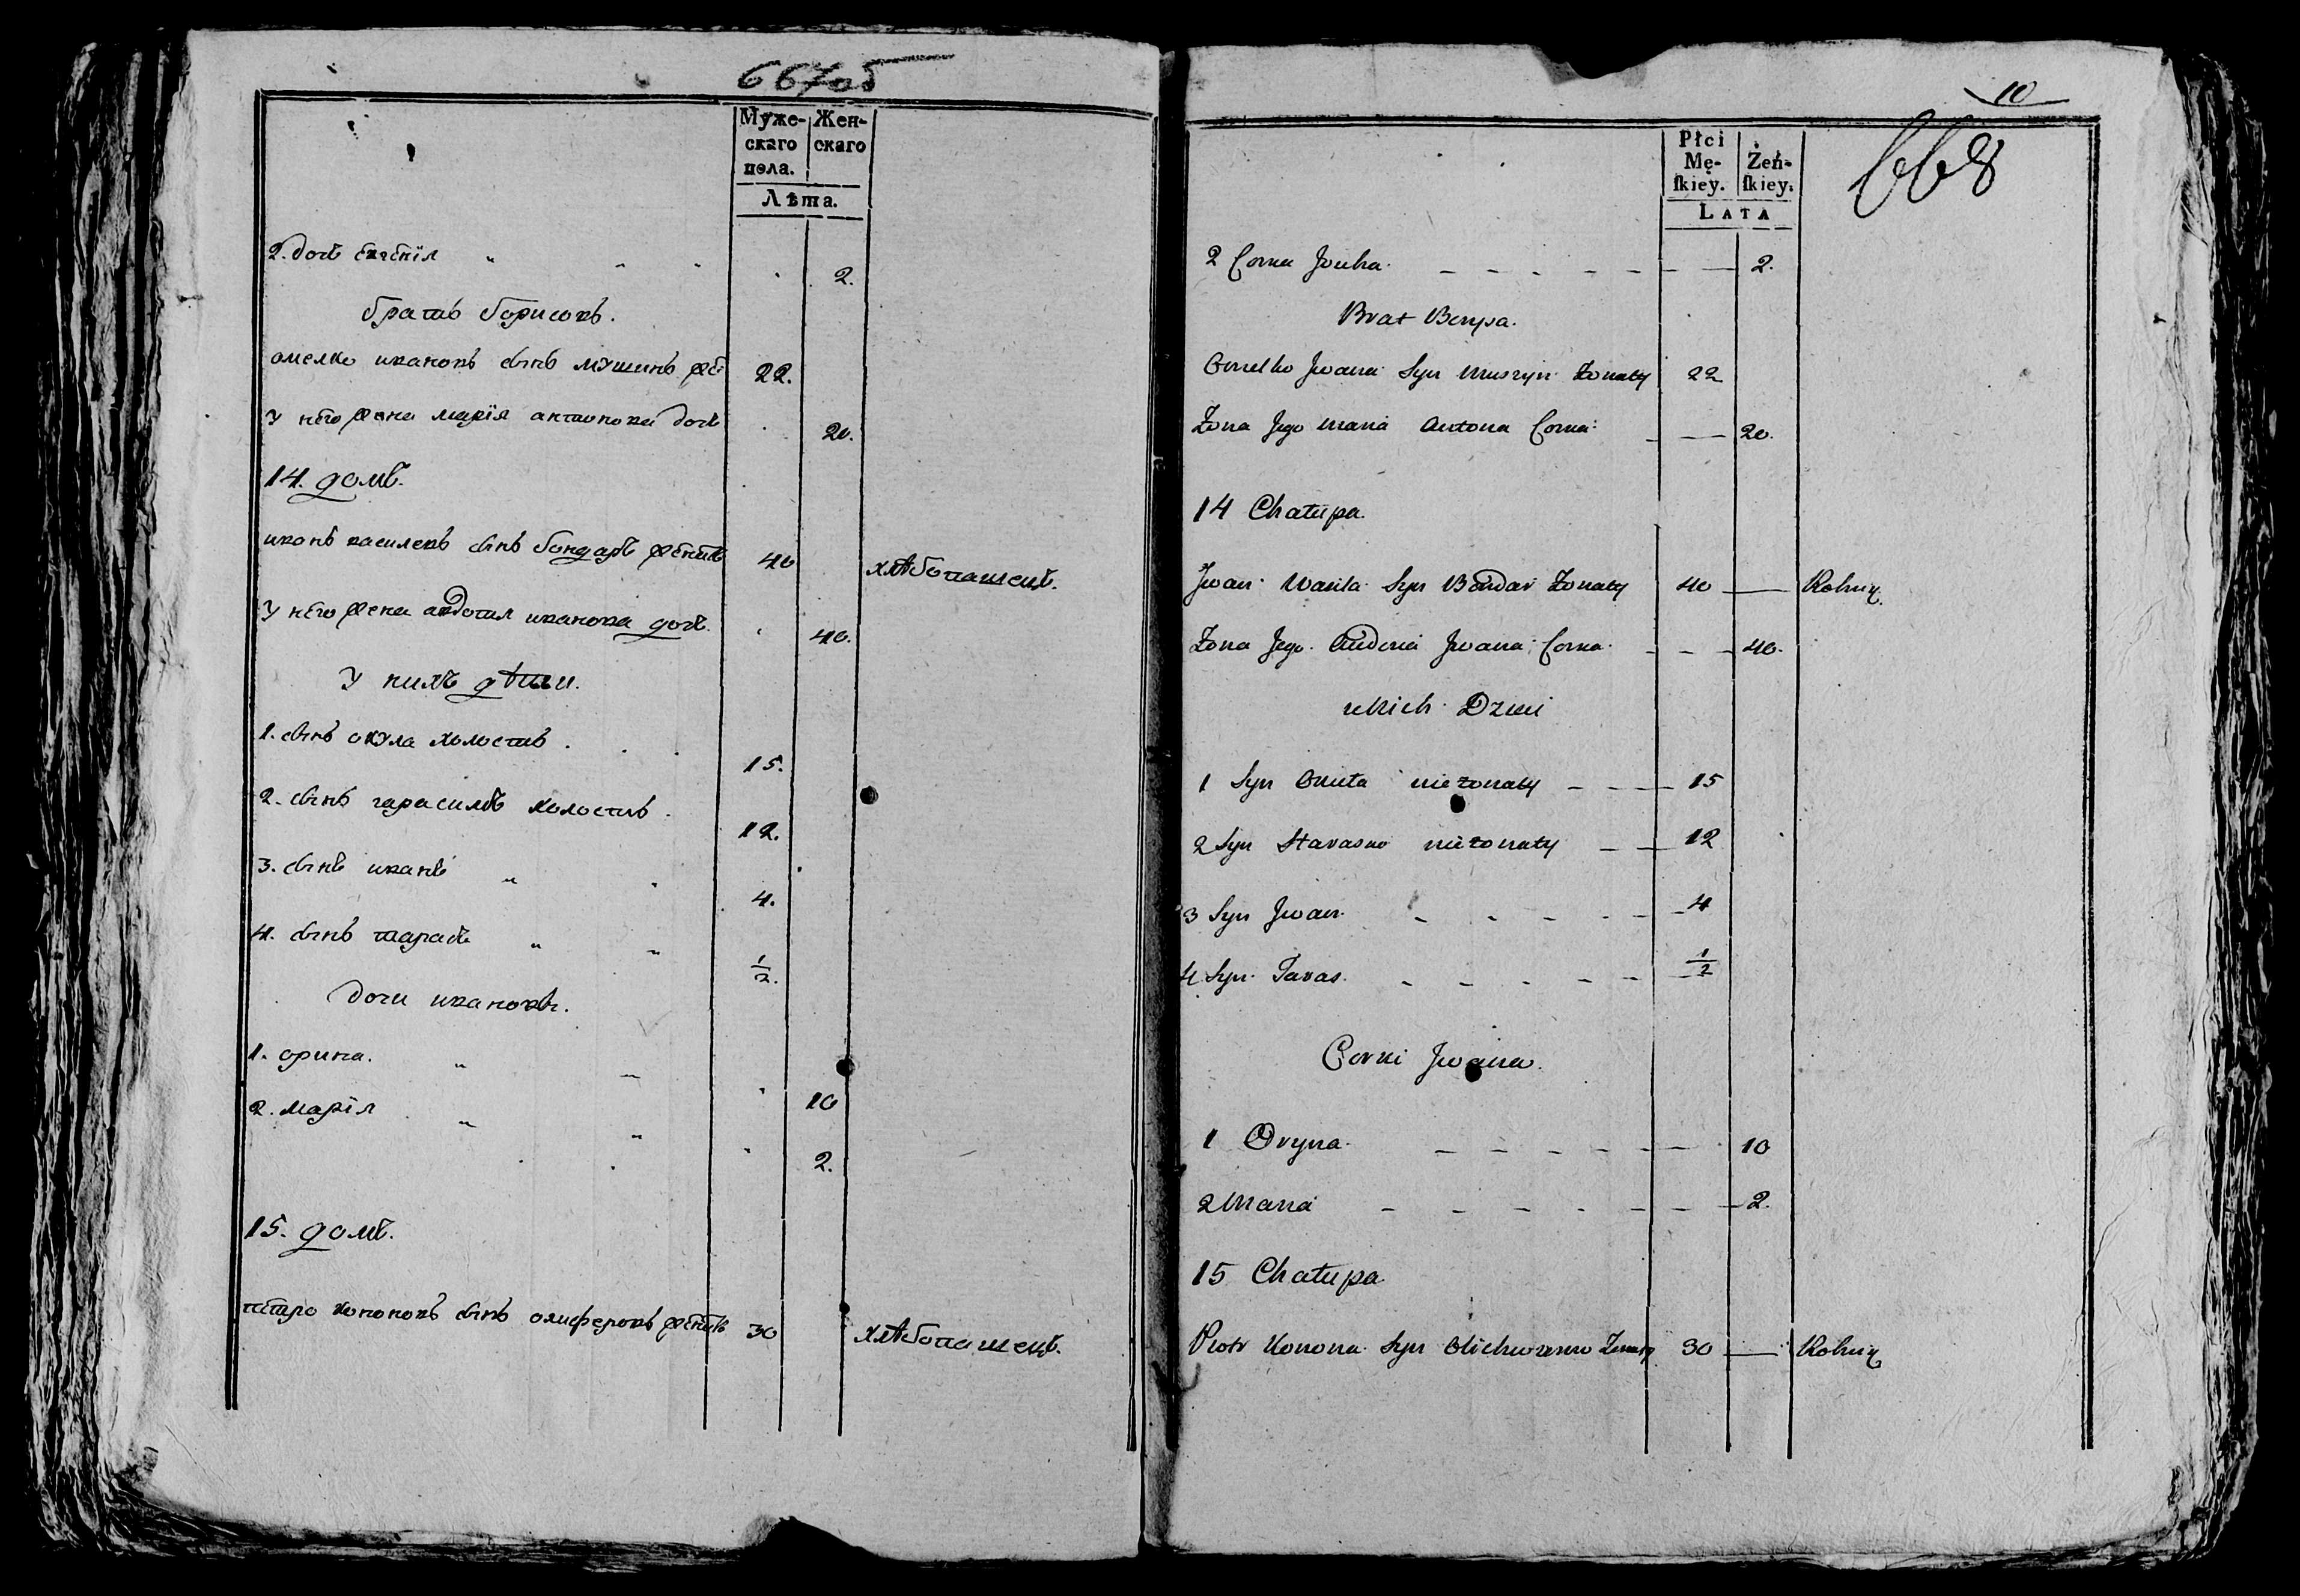 667об
Муже-
скаго
пола.
Жен-
скаго
Лѣта.
2. дочь 2.
братъ борисовъ.
омелко ивановъ сынъ мушинъ 22.
У него жена марія антонова дочь 20.
14. домъ.
иванъ василевъ сынъ бондарь женатъ 40 хлѣбопашецъ.
У него жена авдотия иванова дочь. 40.
У нихъ дѣти.
1. сынъ окула холостъ 15.
2. сынъ гарасимъ холостъ 12.
3. сынъ иванъ 4.
4. сынъ тарасъ 1/2.
дочи ивановы.
1. орина. 10
2. марія 2.
15. домъ.
петро кононовъ сынъ олиферовъ женатъ 30 хлѣбопашецъ.
10
668
Płci
Mę-
ſkiey.
Żeń-
ſkiey.
LATA
2 Corka 2.
Brat
Omelko Jwana Syn Muszyn Żonaty 22
Żona Jego Maria Antona Corka 20.
14 Chałupa.
Jwan Wasila Syn Bondar Żonaty 40 Rolnik
Żona Jego Jwana Corka 40.
u Nich Dzieci
1 Syn nieżonaty 15
2 Syn nieżonaty 12
3 Syn Jwan 4
4 Syn Taras 1/2
Corki Jwana.
1 Oryna 10
2 Maria 2.
15 Chałupa
Piotr Konona Syn Żonaty 30 Rolnik